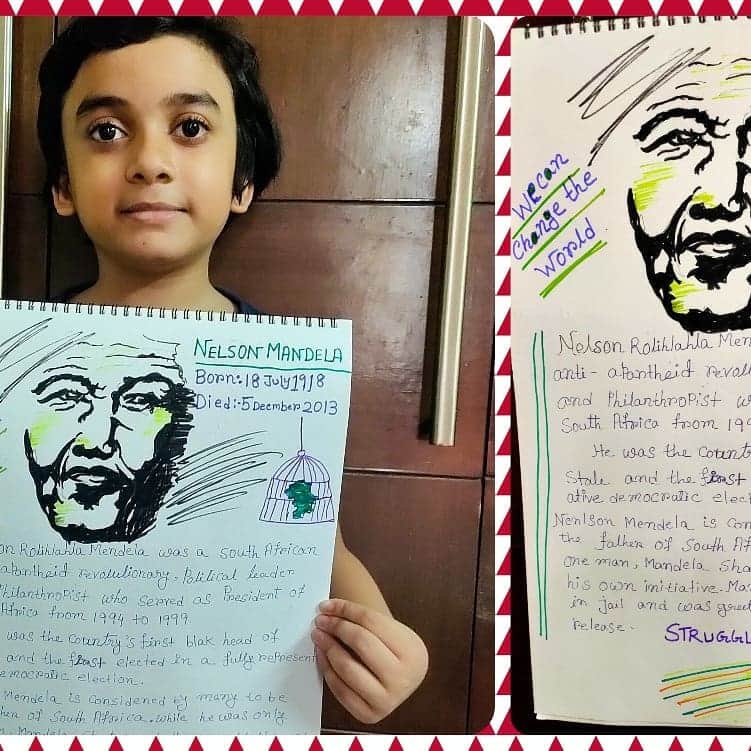 NELSON MANDELA
Born: 18 July 1918
Died:-5 December 2013
on Rolihlahla Mendela was a South African
apartheid revolutionary, Political leader
Philanthropist who served as President of
Africa from 1994 to 1999
was the country's first blak head of
and the first elected in a fully represent
emocratic election.
Mendela is considered by many to be
of South Africa. while he was only
We can
Change the
World
Nelson Rolihlahla Men
anti-apartheid revolu
and Philanthropist w
South Africa from 199
He was the Countr
State and the first
ative democratic elect
Nenlson Mendela is Con
the father of South Af
one man, Mandela Sha
his own initiative. Ma
in jail and was
release.
STRUGGL